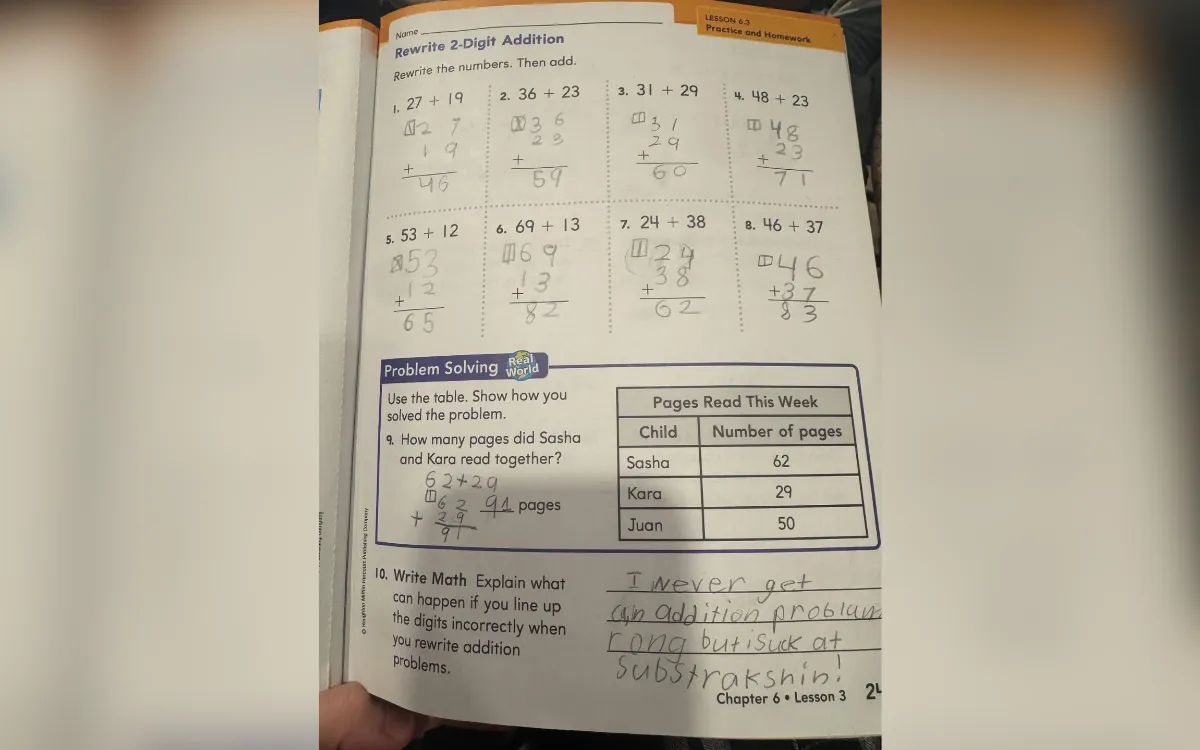 LESSON 6.3
Practice and Homework
Name
Rewrite 2-Digit Addition
Rewrite the numbers. Then add.
1. 27 + 19
2 7
+ 1 9
46
2. 36 + 23
3 6
+ 2 3
59
3. 31 + 29
1
3 1
+ 2 9
60
4. 48 + 23
1
48
+ 23
71
5. 53 + 12
53
+ 12
65
6. 69 + 13
1
69
+ 13
82
7. 24 + 38
1
24
+ 38
62
8. 46 + 37
1
46
+37
83
Problem Solving Real World
Use the table. Show how you
solved the problem.
9. How many pages did Sasha
and Kara read together?
62+29
1
62
+ 29
91
91 pages
Pages Read This Week
Child Number of pages
Sasha 62
Kara 29
Juan 50
10. Write Math Explain what
can happen if you line up
the digits incorrectly when
you rewrite addition
problems.
I never get
an addition problam
rong but i suck at
substrakshin!
© Houghton Mifflin Harcourt Publishing Company
Chapter 6 • Lesson 3